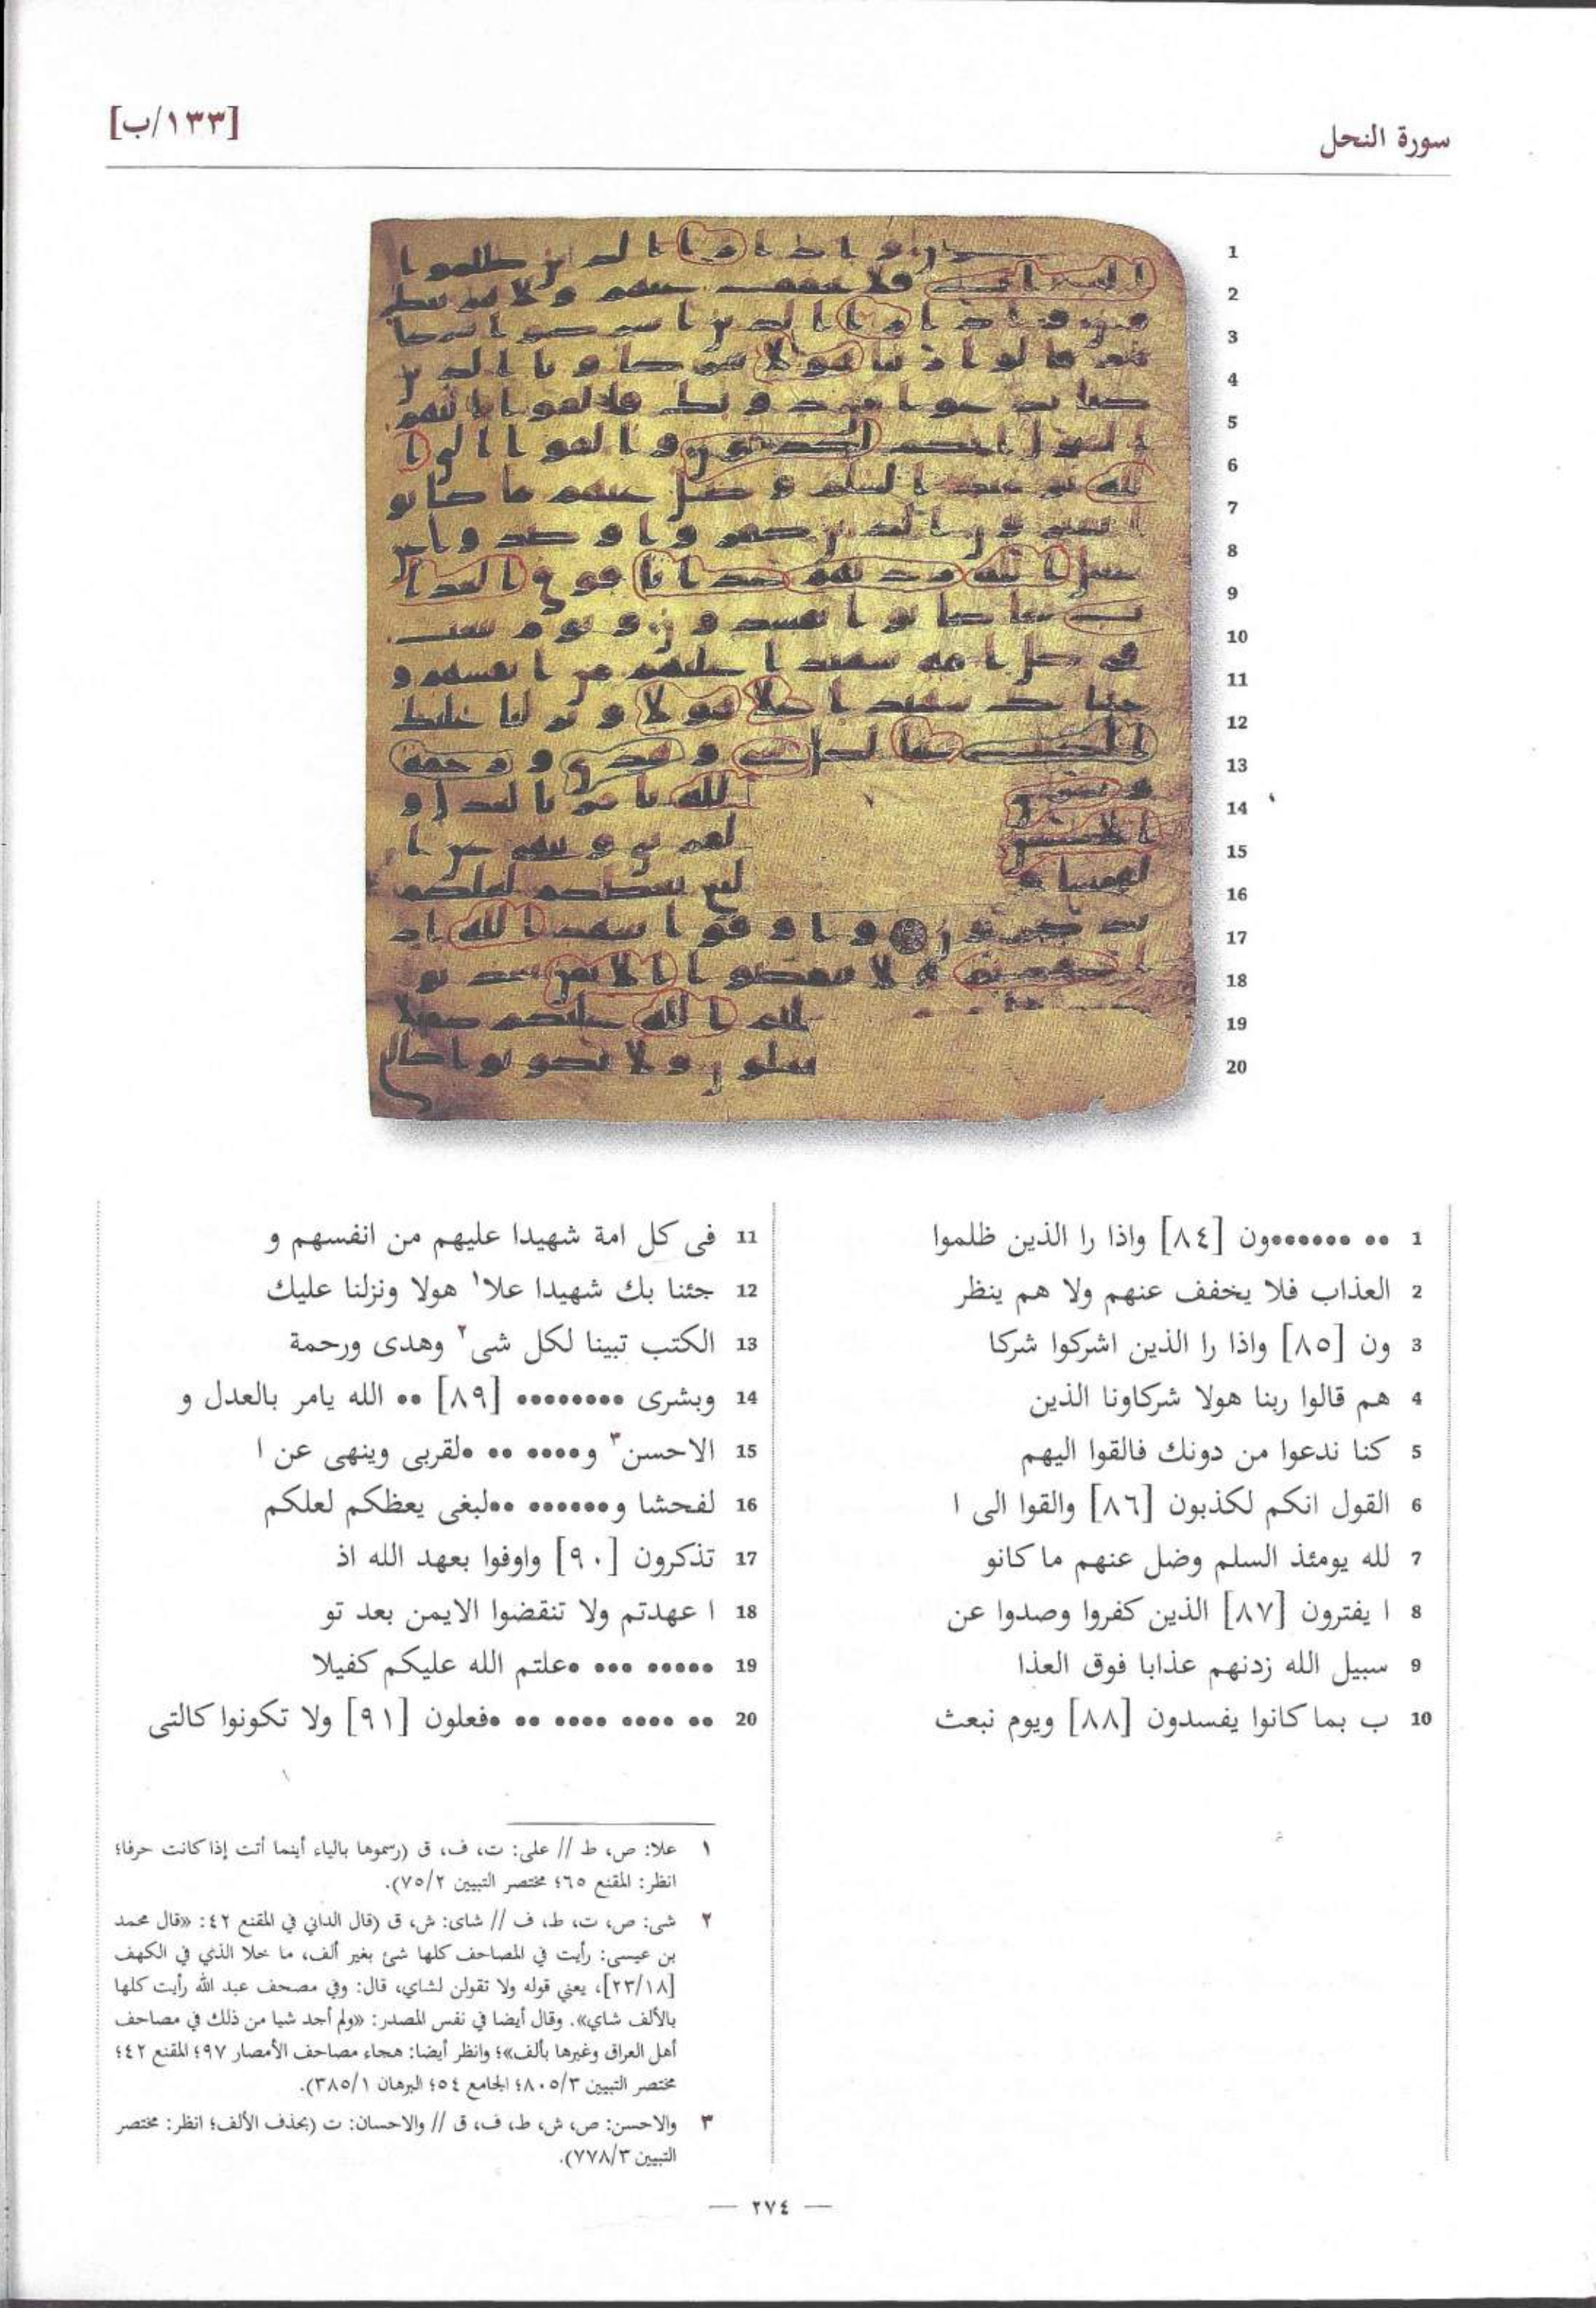 سورة النحل
[١٣٣/ب]
1
2
3
4
5
6
7
8
9
10
11
12
13
14
15
16
17
18
19
20
1 •• •••••••ون [٨٤] واذا را الذين ظلموا
2 العذاب فلا يخفف عنهم ولا هم ينظر
3 ون [٨٥] واذا را الذين اشركوا شركا
4 هم قالوا ربنا هولا شركاونا الذين
5 كنا ندعوا من دونك فالقوا اليهم
6 القول انكم لكذبون [٨٦] والقوا الى ا
7 لله يومئذ السلم وضل عنهم ما كانو
8 ا يفترون [٨٧] الذين كفروا وصدوا عن
9 سبيل الله زدنهم عذابا فوق العذا
10 ب بما كانوا يفسدون [٨٨] ويوم نبعث
11 فى كل امة شهيدا عليهم من انفسهم و
12 جئنا بك شهيدا علا١ هولا ونزلنا عليك
13 الكتب تبينا لكل شى٢ وهدى ورحمة
14 وبشرى •••••••• [٨٩] •• الله يامر بالعدل و
15 الاحسن٣ و•••• •• •لقربى وينهى عن ا
16 لفحشا و•••••• ••لبغى يعظكم لعلكم
17 تذكرون [٩٠] واوفوا بعهد الله اذ
18 ا عهدتم ولا تنقضوا الايمن بعد تو
19 ••••• ••• •علتم الله عليكم كفيلا
20 •• •••• •••• •• •فعلون [٩١] ولا تكونوا كالتى
١ علا: ص، ط // على: ت، ف، ق (رسموها بالياء أينما أتت إذا كانت حرفا؛
انظر: المقنع ٦٥؛ مختصر التبيين ٧٥/٢).
٢ شى: ص، ت، ط، ف // شاى: ش، ق (قال الداني في المقنع ٤٢: «قال محمد
بن عيسى: رأيت في المصاحف كلها شئ بغير ألف، ما خلا الذي في الكهف
[٢٣/١٨]، يعني قوله ولا تقولن لشاي، قال: وفي مصحف عبد الله رأيت كلها
بالألف شاي». وقال أيضا في نفس المصدر: «ولم أجد شيا من ذلك في مصاحف
أهل العراق وغيرها بألف»؛ وانظر أيضا: هجاء مصاحف الأمصار ٩٧؛ المقنع ٤٢؛
مختصر التبيين ٨٠٥/٣؛ الجامع ٥٤؛ البرهان ٣٨٥/١).
٣ والاحسن: ص، ش، ط، ف، ق // والاحسان: ت (بحذف الألف؛ انظر: مختصر
التبيين ٧٧٨/٣).
— ٢٧٤ —